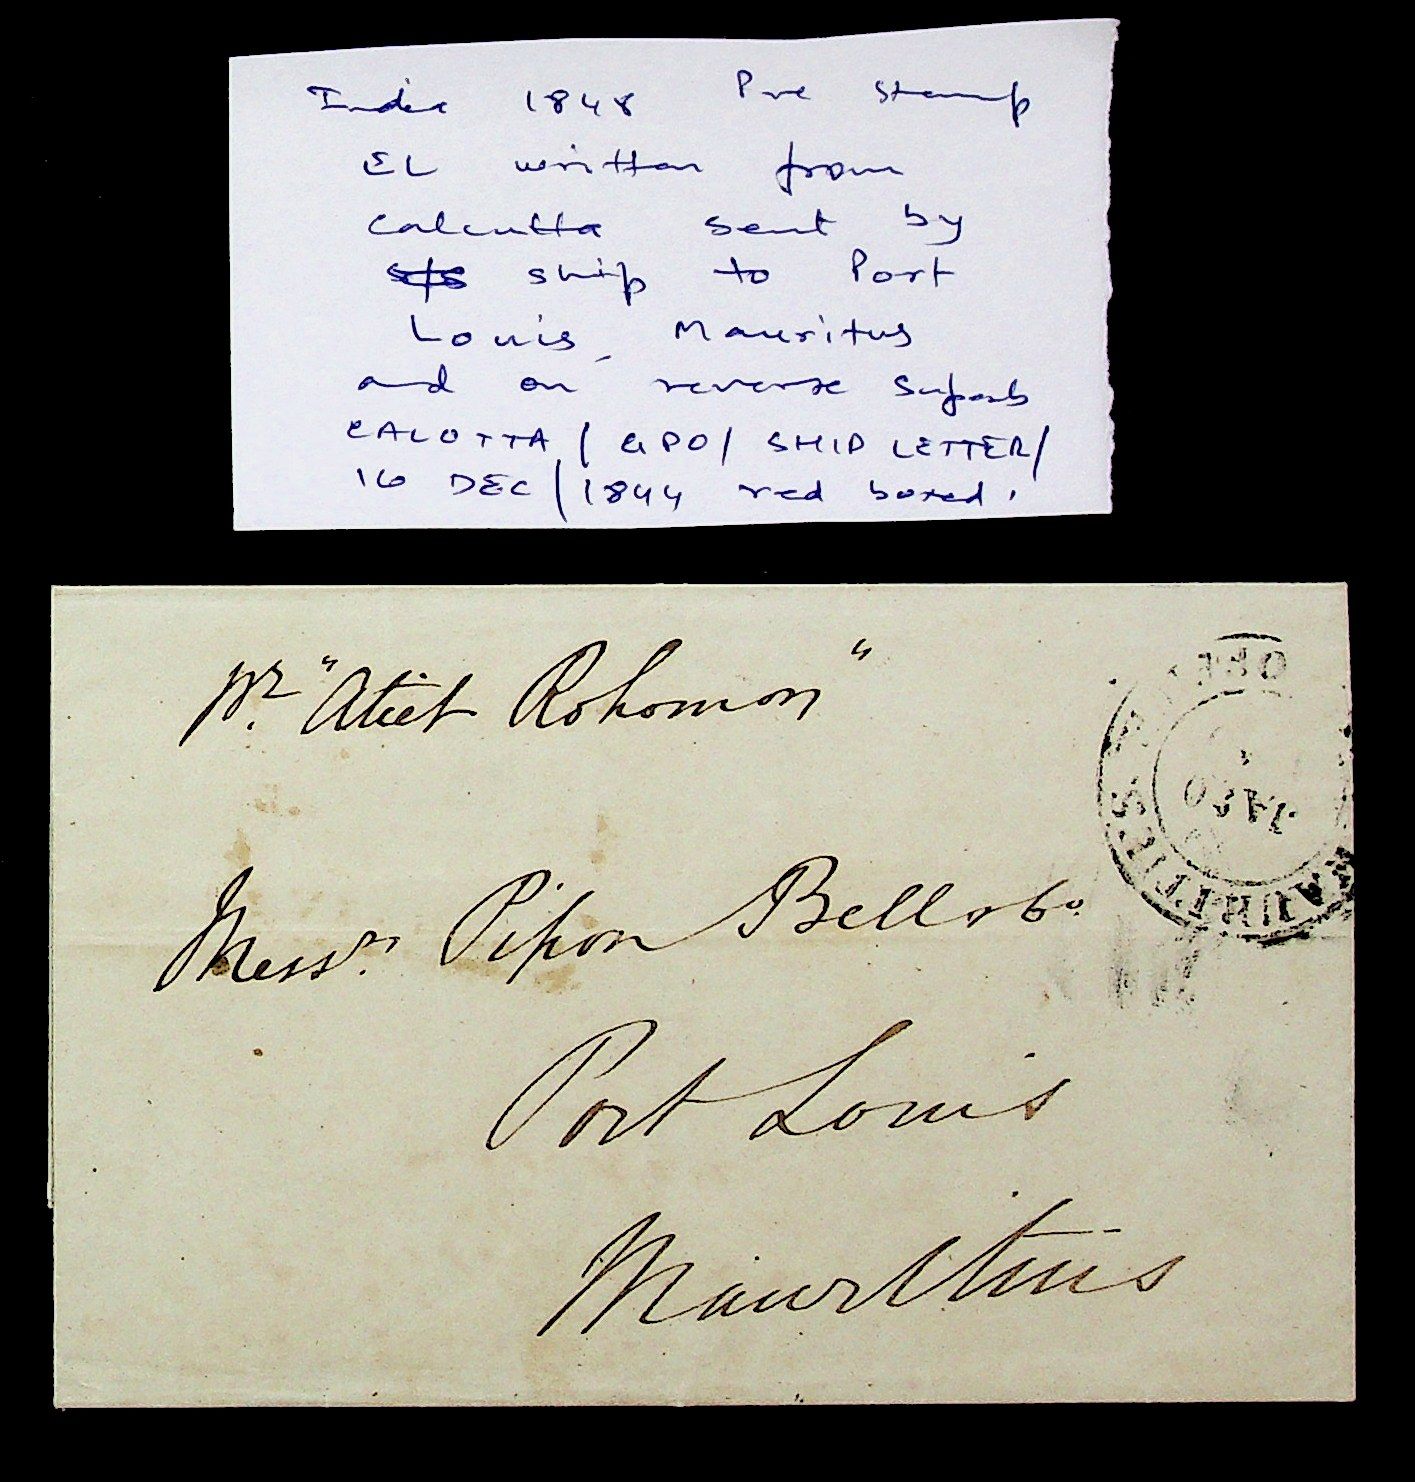 India 1848 Pre stamp
EL written from
Calcutta sent by
ship to Port
Louis, Mauritus
and on reverse Superb
CALCTTA / GPO / SHIP LETTER /
16 DEC / 1844 red boxed.
pr. "Atiet Rohomon"
Messrs. Pipon Bell & Co.
Port Louis
Mauritius
MAURITIUS